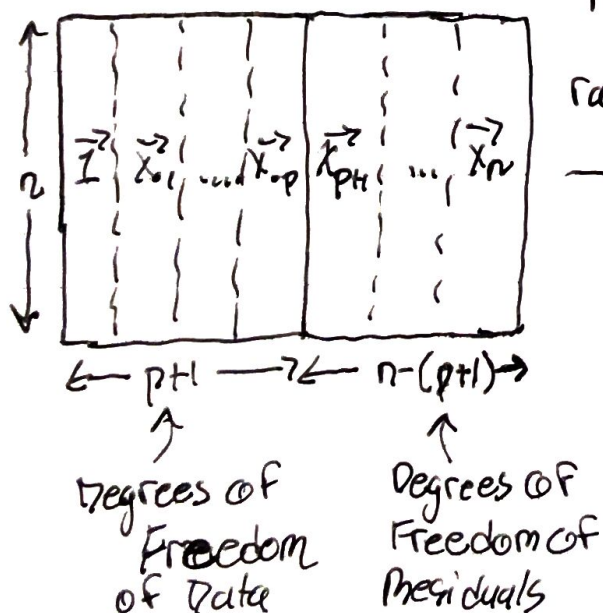 ra
n
1⃗ x⃗.1 .... x⃗.p x⃗p+1 ... x⃗n
p+1 n-(p+1)
Degrees of Freedom of Data
Degrees of Freedom of Residuals